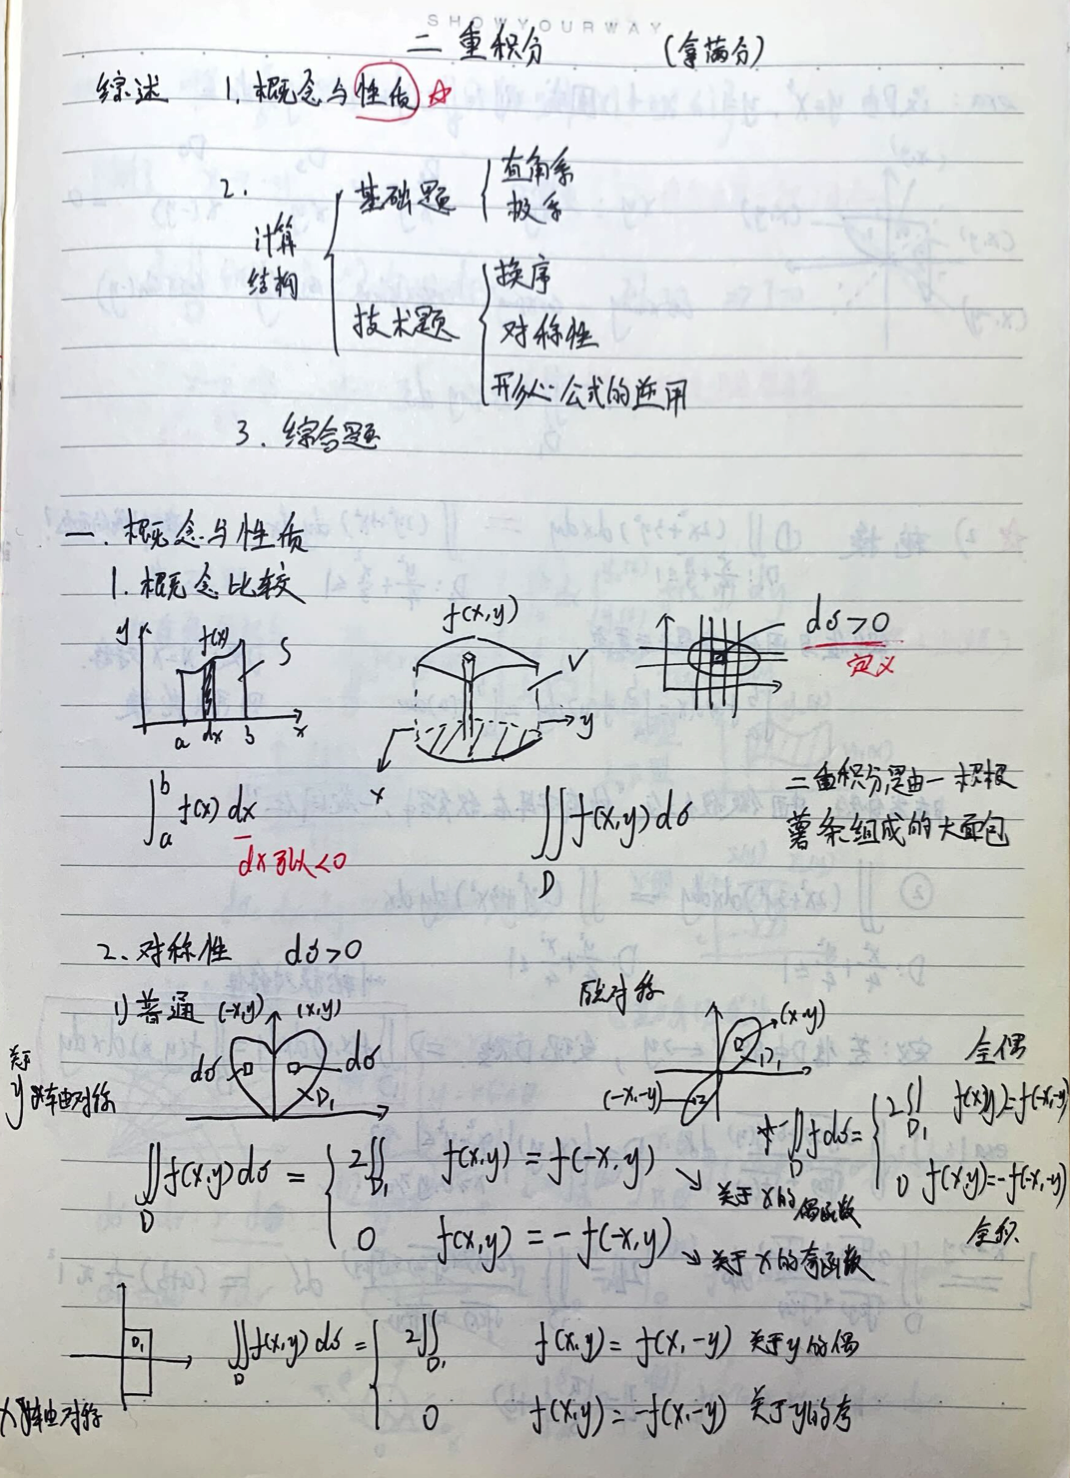 SHOWYOURWAY
二重积分 (拿满分)
综述 1. 概念与性质 ☆
2. 计算结构
基础题 { 直角系
极系
技术题 { 换序
对称性
形心公式的逆用
3. 综合题
一. 概念与性质
1. 概念比较
y f(x) S a dx b x
f(x,y) V y x
dσ>0
定义
∫_a^b f(x) dx
dx可以<0
∬_D f(x,y) dσ
二重积分是由一根根
薯条组成的大面包
2. 对称性 dσ>0
1) 普通 (-x,y) (x,y)
dσ dσ D₁
关于y轴对称
∬_D f(x,y) dσ = { 2∬_{D₁} f(x,y) = f(-x,y) ↘ 关于x的偶函数
0 f(x,y) = -f(-x,y) ↘ 关于x的奇函数
点对称
(x,y) D₁ (-x,-y)
全偶
∬_D f dσ = { 2∬_{D₁} f(x,y)=f(-x,-y)
0 f(x,y)=-f(-x,-y)
全积
x轴对称 D₁
∬_D f(x,y) dσ = { 2∬_{D₁} f(x,y) = f(x,-y) 关于y的偶
0 f(x,y) = -f(x,-y) 关于y的奇